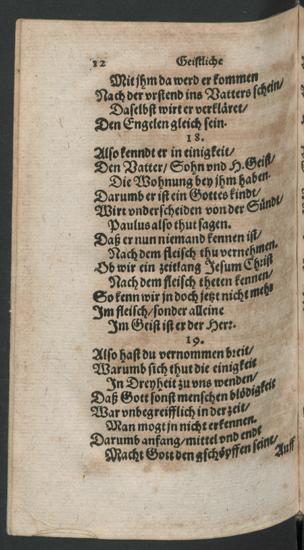 12 Geistliche
Mit jhm da werd er kommen
Nach der vrstend ins Vatters schein/
Daselbst wirt er verkläret/
Den Engelen gleich sein.
18.
Also kenndt er in einigkeit/
Den Vatter/ Sohn vnd H. Geist/
Die Wohnung bey jhm haben.
Darumb er ist ein Gottes kindt/
Wirt vnderscheiden von der Sündt/
Paulus also thut sagen.
Daß er nun niemand kennen ist/
Nach dem fleisch thu vernehmen.
Ob wir ein zeitlang Jesum Christ
Nach dem fleisch theten kennen/
So kenn wir jn doch jetzt nicht mehr
Im fleisch/ sonder alleine
Im Geist ist er der Herr.
19.
Also hast du vernommen breit/
Warumb sich thut die einigkeit
In Dreyheit zu vns wenden/
Daß Gott sonst menschen blödigkeit
War vnbegreifflich in der zeit/
Man mogt jn nicht erkennen.
Darumb anfang/ mittel vnd endt
Macht Gott den gschöpffen seint/
Auff